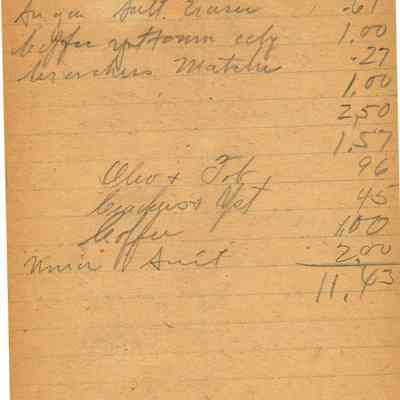 Sugar Salt. Eraser .61
Coffee 1.00
Crackers Matches .27
1.00
2,50
1,57
Oleo + Tob 96
Crackers + Yst 45
Coffee 1,00
Suit 2,00
11,43